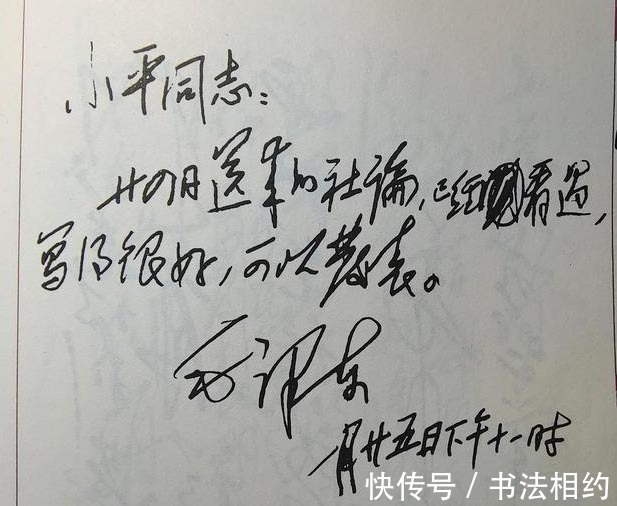 小平同志:
廿四日送来的社论,已经看过,
写得很好,可以发表。
毛泽东
一月廿五日下午十一时
快传号 / 书法相约